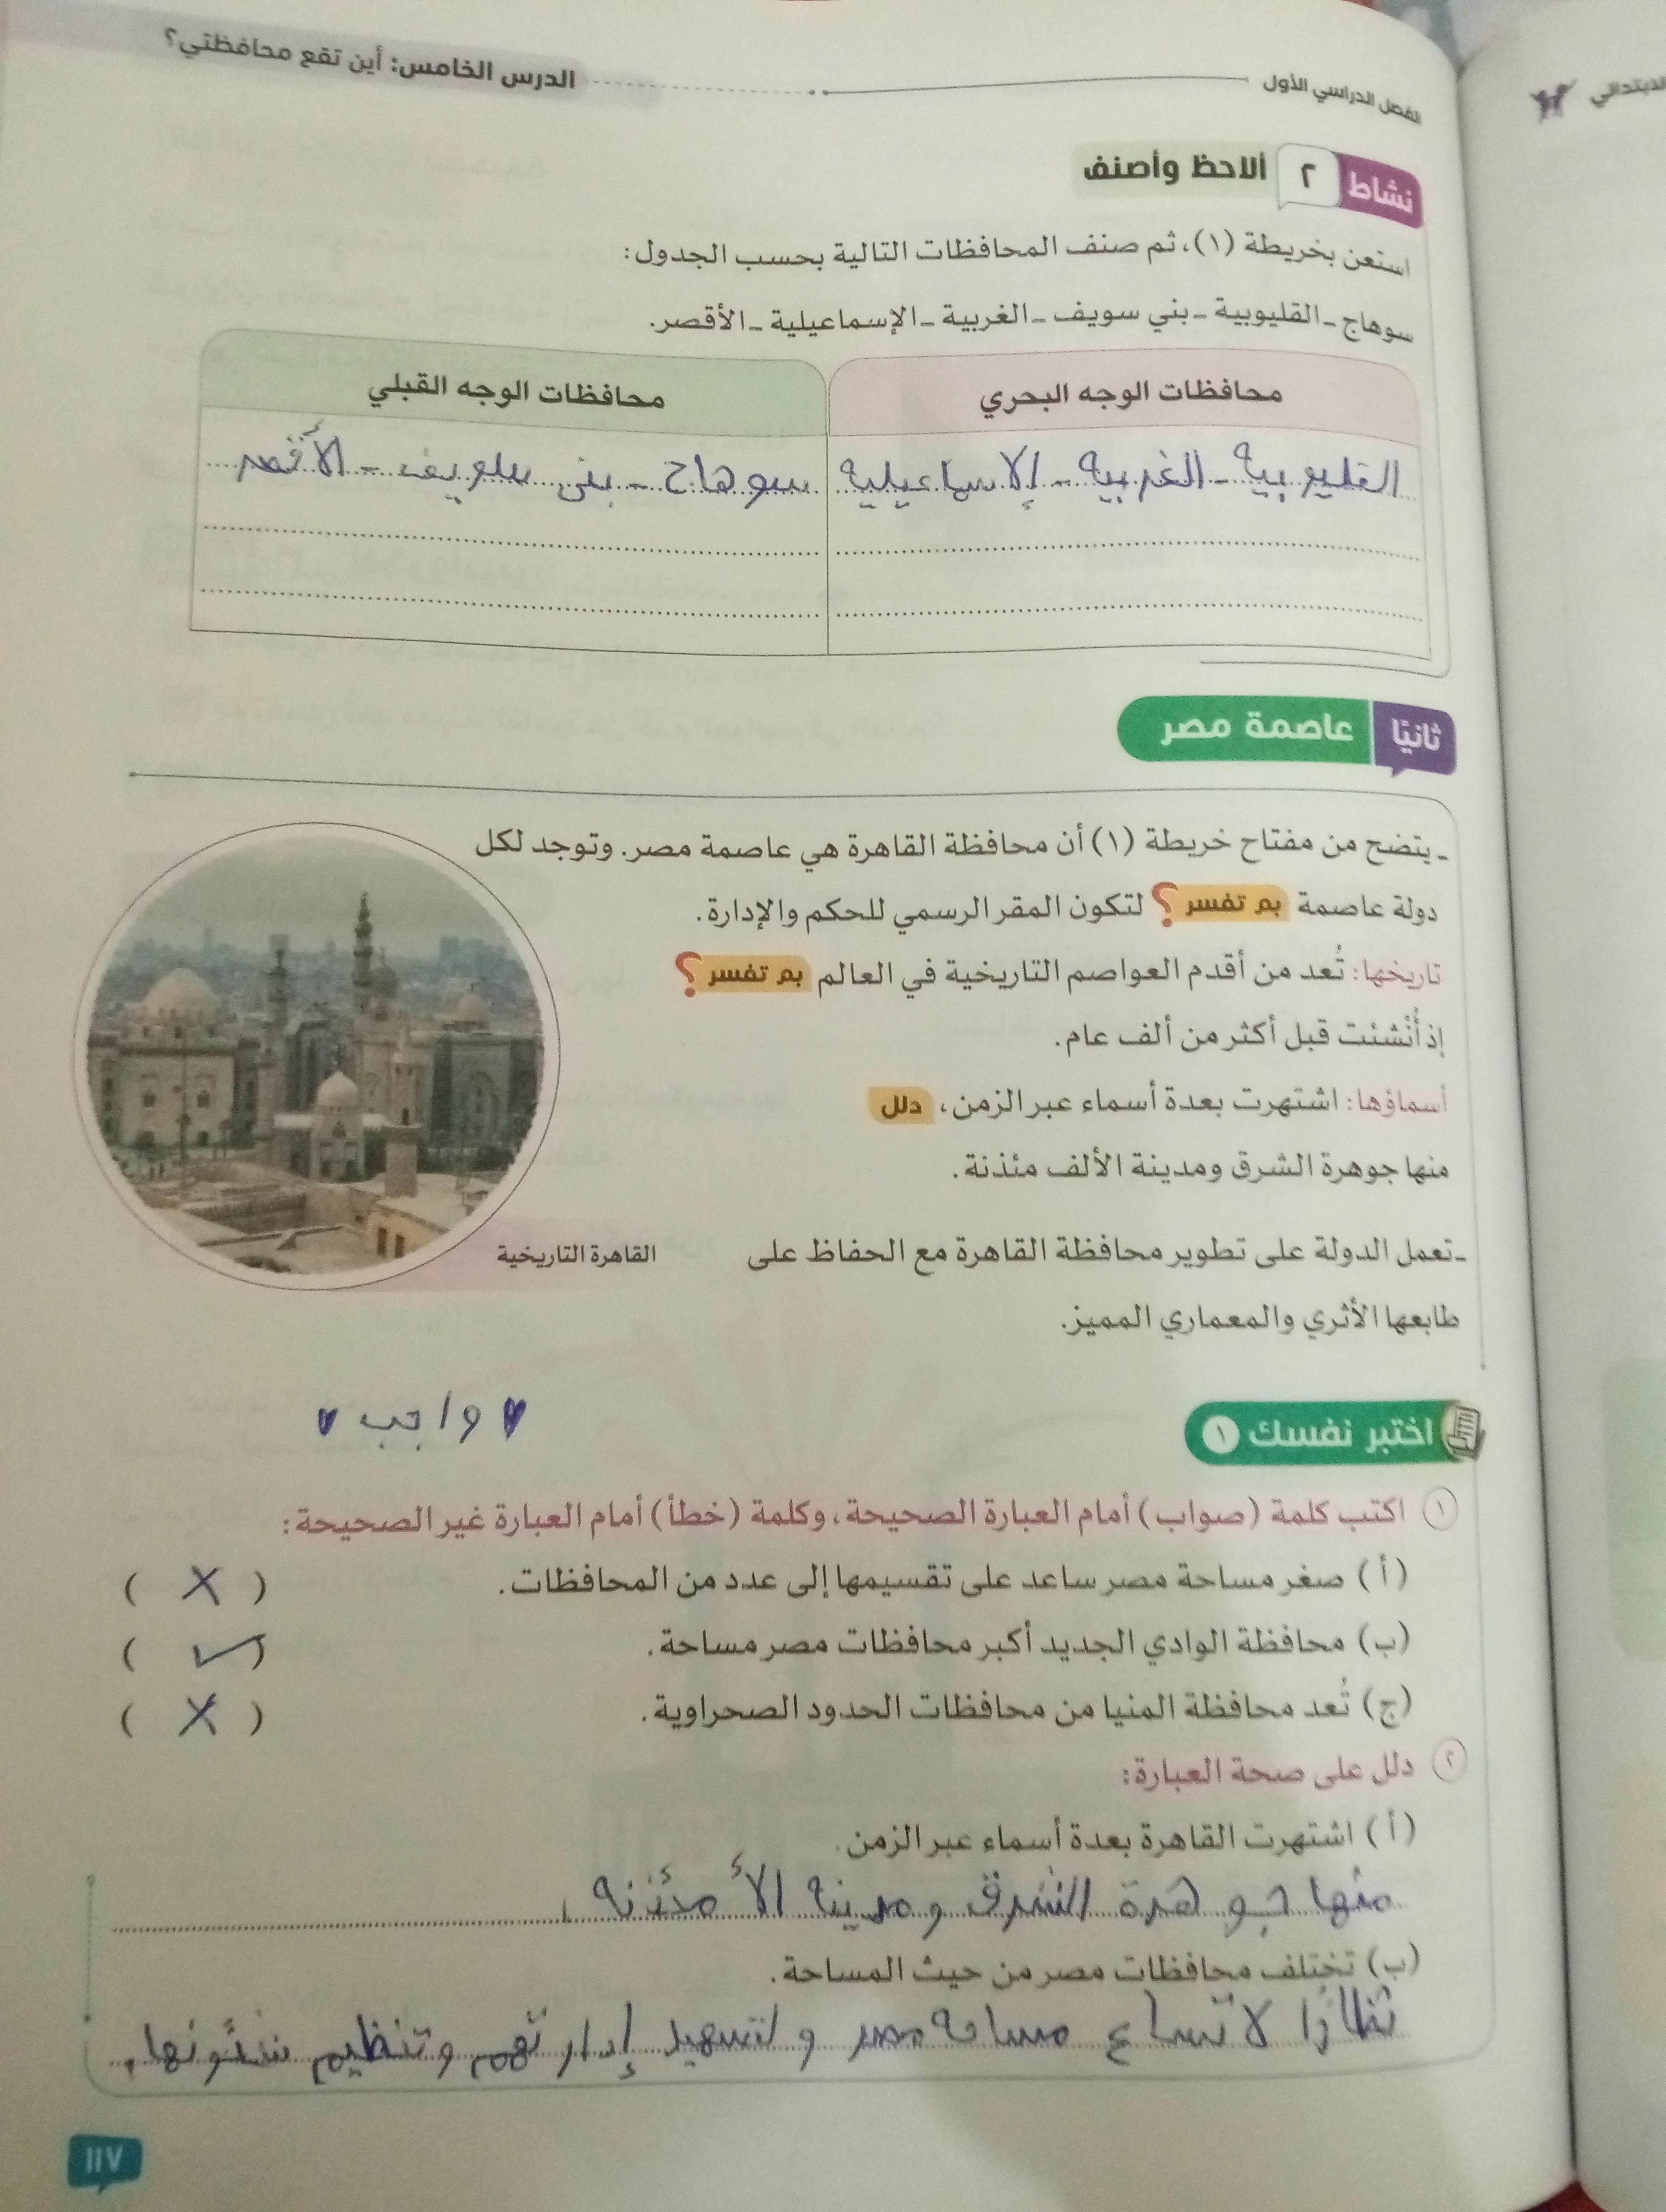 الابتدائي
الفصل الدراسي الأول
الدرس الخامس: أين تقع محافظتي؟
نشاط ٢ ألاحظ وأصنف
استعن بخريطة (١)، ثم صنف المحافظات التالية بحسب الجدول:
سوهاج - القليوبية - بني سويف - الغربية - الإسماعيلية - الأقصر.
محافظات الوجه البحري
محافظات الوجه القبلي
القليوبية - الغربية - الإسماعيلية
سوهاج - بنى سويف - الأقصر
ثانيًا عاصمة مصر
- يتضح من مفتاح خريطة (١) أن محافظة القاهرة هي عاصمة مصر. وتوجد لكل
دولة عاصمة بم تفسر؟ لتكون المقر الرسمي للحكم والإدارة.
تاريخها: تُعد من أقدم العواصم التاريخية في العالم بم تفسر؟
إذ أُنْشئت قبل أكثر من ألف عام.
أسماؤها: اشتهرت بعدة أسماء عبر الزمن، دلل
منها جوهرة الشرق ومدينة الألف مئذنة.
القاهرة التاريخية
- تعمل الدولة على تطوير محافظة القاهرة مع الحفاظ على
طابعها الأثري والمعماري المميز.
♥ واجب ♥
اختبر نفسك ١
١ اكتب كلمة (صواب) أمام العبارة الصحيحة، وكلمة (خطأ) أمام العبارة غير الصحيحة:
(أ) صغر مساحة مصر ساعد على تقسيمها إلى عدد من المحافظات. ( X )
(ب) محافظة الوادي الجديد أكبر محافظات مصر مساحة. ( ✓ )
(ج) تُعد محافظة المنيا من محافظات الحدود الصحراوية. ( X )
٢ دلل على صحة العبارة:
(أ) اشتهرت القاهرة بعدة أسماء عبر الزمن.
منها جوهرة الشرق ومدينه الأ مئذنه.
(ب) تختلف محافظات مصر من حيث المساحة.
نظرًا لاتساع مساحه مصر ولتسهيد إدارتهم وتنظيم شئونها.
١١٧